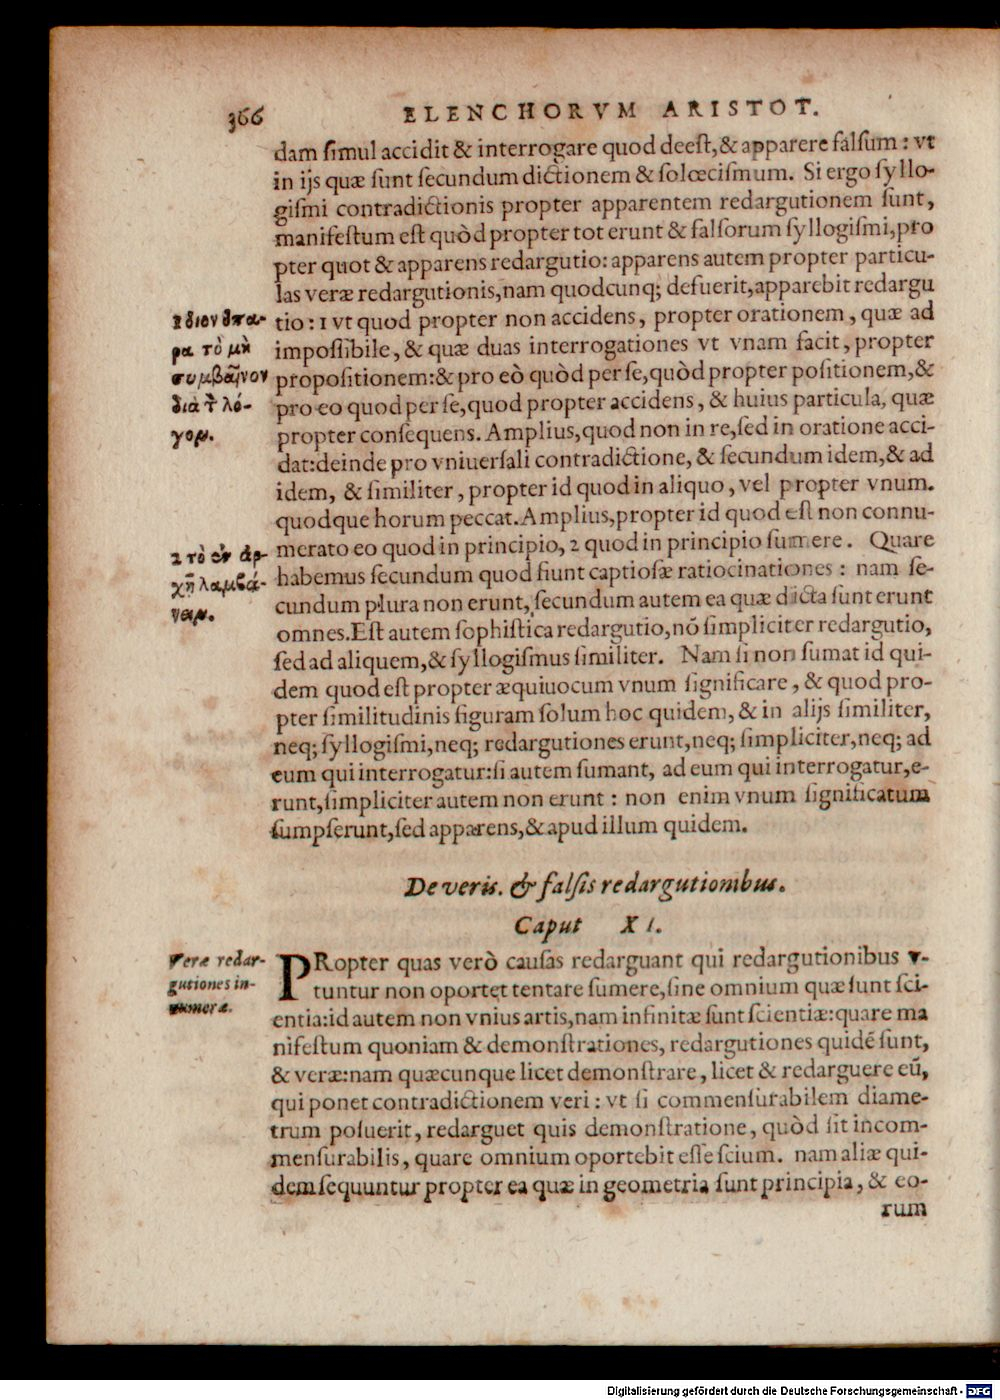 366 ELENCHORVM ARISTOT.
dam simul accidit & interrogare quod deest, & apparere falsum : vt
in ijs quæ sunt secundum dictionem & solœcismum. Si ergo syllo-
gismi contradictionis propter apparentem redargutionem sunt,
manifestum est quòd propter tot erunt & falsorum syllogismi, pro
pter quot & apparens redargutio: apparens autem propter particu-
las veræ redargutionis, nam quodcunq; defuerit, apparebit redargu
tio : 1 vt quod propter non accidens, propter orationem, quæ ad
impossibile, & quæ duas interrogationes vt vnam facit, propter
propositionem: & pro eò quòd per se, quòd propter positionem, &
pro eo quod per se, quod propter accidens, & huius particula, quæ
propter consequens. Amplius, quod non in re, sed in oratione acci-
dat: deinde pro vniuersali contradictione, & secundum idem, & ad
idem, & similiter, propter id quod in aliquo, vel propter vnum.
quodque horum peccat. Amplius, propter id quod est non connu-
merato eo quod in principio, 2 quod in principio sumere. Quare
habemus secundum quod fiunt captiosæ ratiocinationes : nam se-
cundum plura non erunt, secundum autem ea quæ dicta sunt erunt
omnes. Est autem sophistica redargutio, nō simpliciter redargutio,
sed ad aliquem, & syllogismus similiter. Nam si non sumat id qui-
dem quod est propter æquiuocum vnum significare, & quod pro-
pter similitudinis figuram solum hoc quidem, & in alijs similiter,
neq; syllogismi, neq; redargutiones erunt, neq; simpliciter, neq; ad
eum qui interrogatur: si autem sumant, ad eum qui interrogatur, e-
runt, simpliciter autem non erunt : non enim vnum significatum
sumpserunt, sed apparens, & apud illum quidem.
1 διον ὁ πα-
ρα τὸ μὴ
συμβαῖνον
διὰ τ̃ λό-
γου.
2 τὸ ἐν ἀρ-
χῇ λαμβά-
νειν.
De veris. & falsis redargutionibus.
Caput XI.
Veræ redar-
gutiones in-
numeræ.
PRopter quas verò causas redarguant qui redargutionibus v-
tuntur non oportet tentare sumere, sine omnium quæ sunt sci-
entia: id autem non vnius artis, nam infinitæ sunt scientiæ: quare ma
nifestum quoniam & demonstrationes, redargutiones quidē sunt,
& veræ: nam quæcunque licet demonstrare, licet & redarguere eū,
qui ponet contradictionem veri : vt si commensurabilem diame-
trum posuerit, redarguet quis demonstratione, quòd sit incom-
mensurabilis, quare omnium oportebit esse scium. nam aliæ qui-
dem sequuntur propter ea quæ in geometria sunt principia, & eo-
rum
Digitalisierung gefördert durch die Deutsche Forschungsgemeinschaft - DFG